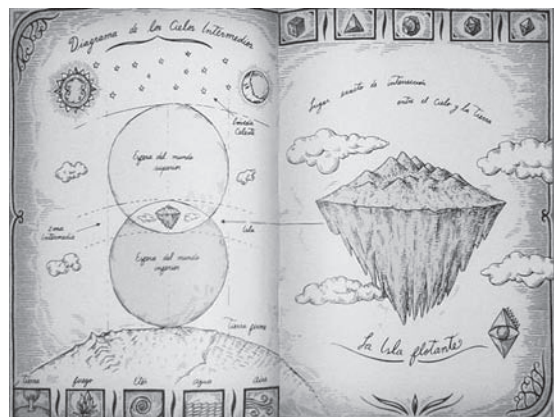 Diagrama de los Cielos Intermedios
Bóveda
Celeste
Esfera del mundo
superior
Zona
Intermedia
Isla
Esfera del mundo
inferior
Tierra firme
Tierra
fuego
Eter
agua
Aire
Lugar exacto de intersección
entre el Cielo y la Tierra
La Isla flotante